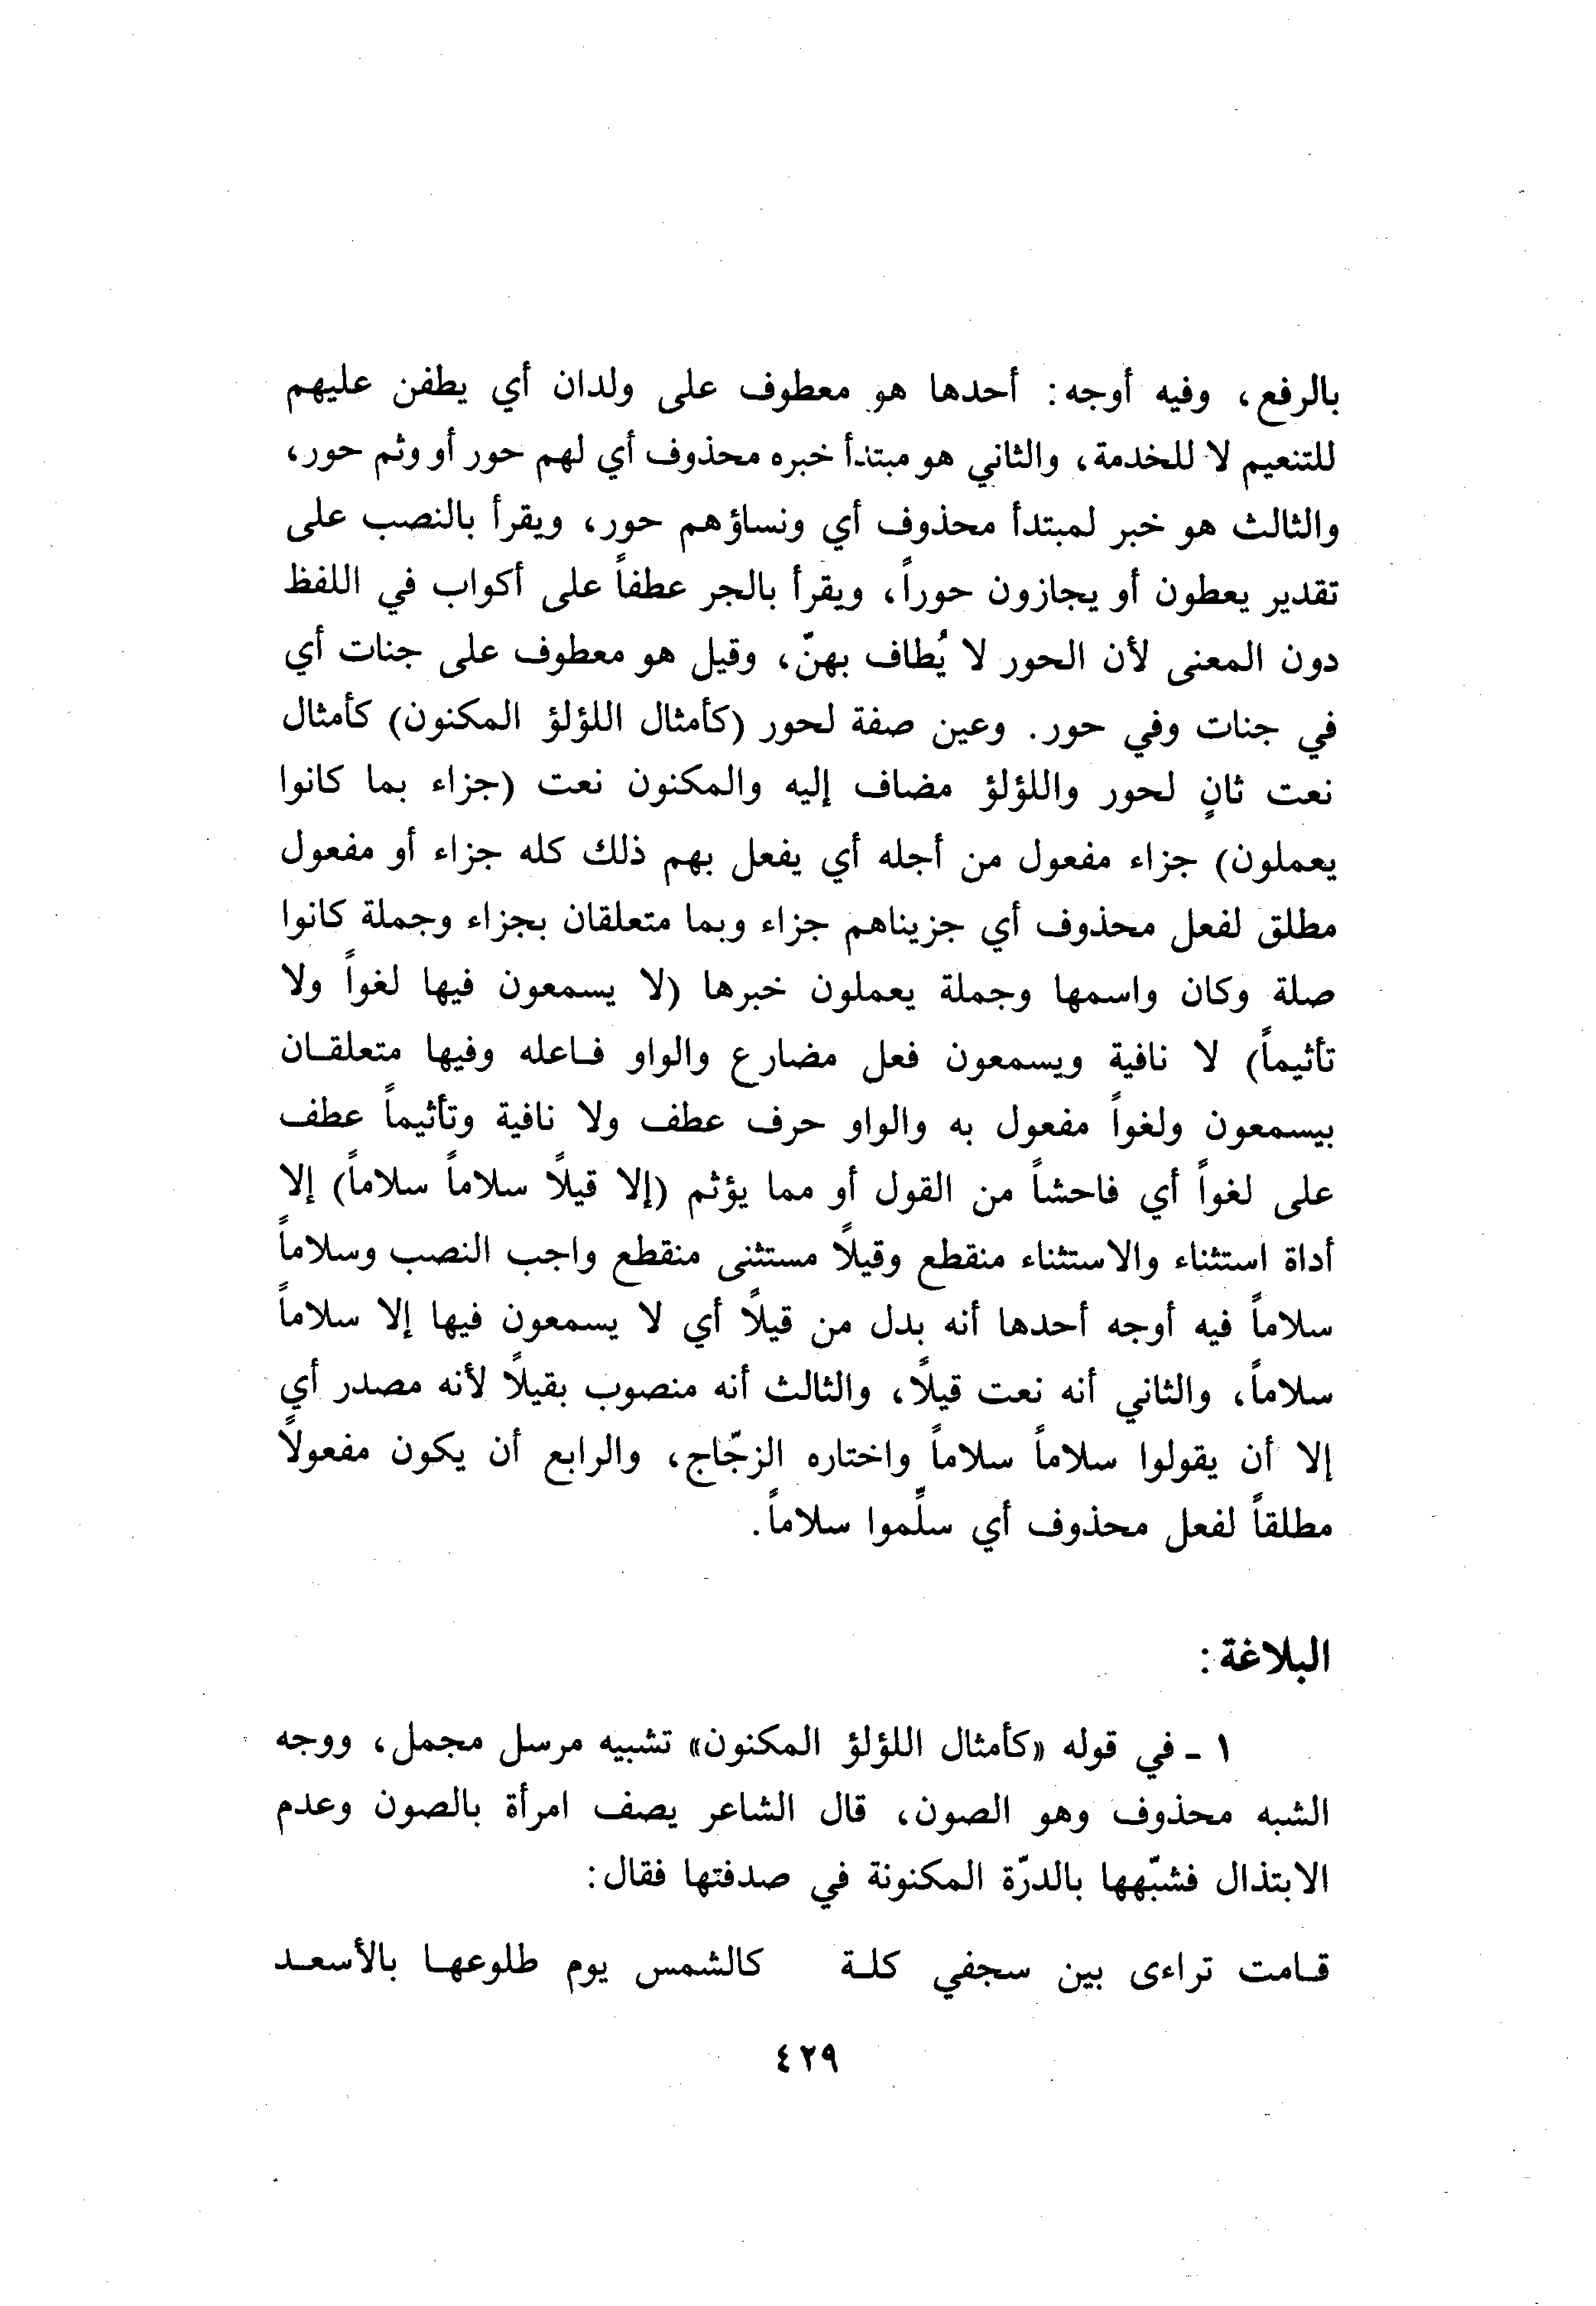 بالرفع، وفيه أوجه: أحدها هو معطوف على ولدان أي يطفن عليهم
للتنعيم لا للخدمة، والثاني هو مبتدأ خبره محذوف أي لهم حور أو وثم حور،
والثالث هو خبر لمبتدأ محذوف أي ونساؤهم حور، ويقرأ بالنصب على
تقدير يعطون أو يجازون حوراً، ويقرأ بالجر عطفاً على أكواب في اللفظ
دون المعنى لأن الحور لا يُطاف بهنّ، وقيل هو معطوف على جنات أي
في جنات وفي حور. وعين صفة لحور (كأمثال اللؤلؤ المكنون) كأمثال
نعت ثانٍ لحور واللؤلؤ مضاف إليه والمكنون نعت (جزاء بما كانوا
يعملون) جزاء مفعول من أجله أي يفعل بهم ذلك كله جزاء أو مفعول
مطلق لفعل محذوف أي جزيناهم جزاء وبما متعلقان بجزاء وجملة كانوا
صلة وكان واسمها وجملة يعملون خبرها (لا يسمعون فيها لغواً ولا
تأثيماً) لا نافية ويسمعون فعل مضارع والواو فاعله وفيها متعلقان
بيسمعون ولغواً مفعول به والواو حرف عطف ولا نافية وتأثيماً عطف
على لغواً أي فاحشاً من القول أو مما يؤثم (إلا قيلًا سلاماً سلاماً) إلا
أداة استثناء والاستثناء منقطع وقيلًا مستثنى منقطع واجب النصب وسلاماً
سلاماً فيه أوجه أحدها أنه بدل من قيلًا أي لا يسمعون فيها إلا سلاماً
سلاماً، والثاني أنه نعت قيلًا، والثالث أنه منصوب بقيلًا لأنه مصدر أي
إلا أن يقولوا سلاماً سلاماً واختاره الزجّاج، والرابع أن يكون مفعولاً
مطلقاً لفعل محذوف أي سلِّموا سلاماً.
البلاغة:
١ - في قوله «كأمثال اللؤلؤ المكنون» تشبيه مرسل مجمل، ووجه
الشبه محذوف وهو الصون، قال الشاعر يصف امرأة بالصون وعدم
الابتذال فشبّهها بالدرّة المكنونة في صدفتها فقال:
قامت تراءى بين سجفي كلة كالشمس يوم طلوعها بالأسعد
٤٢٩